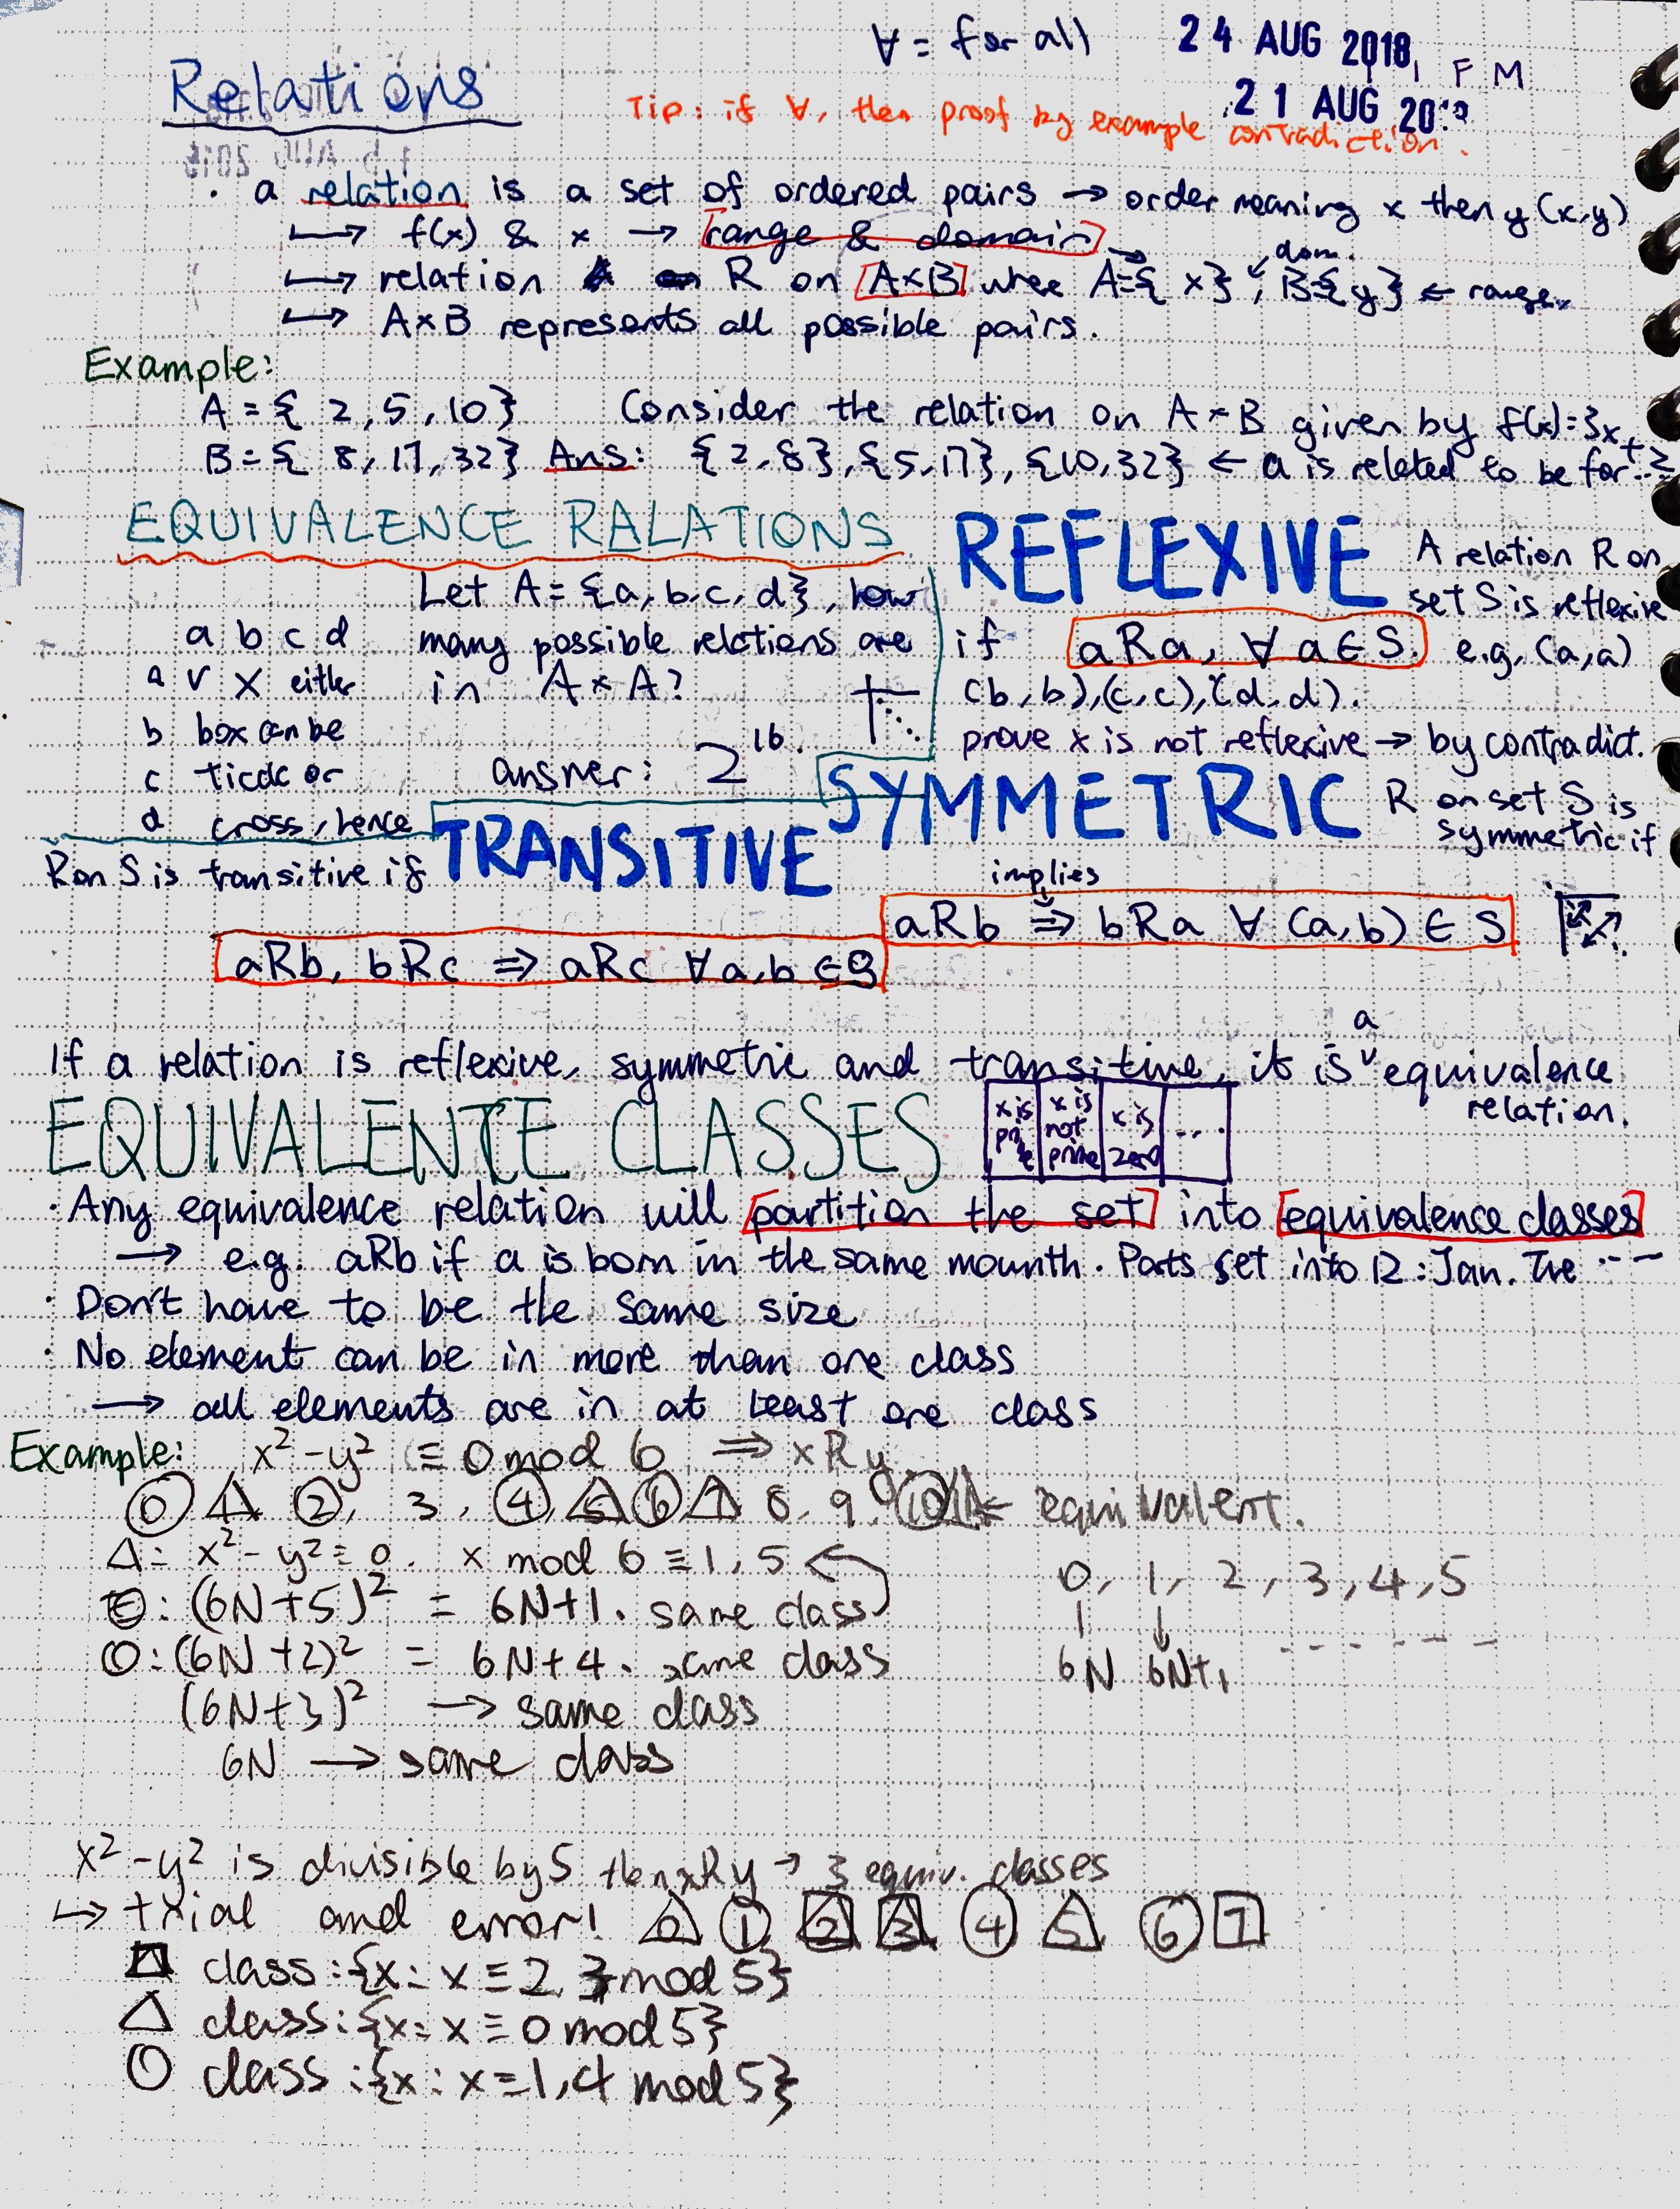 ∀ = for all
24 AUG 2018
F M
21 AUG
Relations
Tip: if ∀, then proof by example contradiction.
· a relation is a set of ordered pairs → order meaning x then y (x,y)
↦ f(x) & x → range & domain
↦ relation R on A×B where A={ x}, B={y} ← range
dom.
↦ A×B represents all possible pairs.
Example:
A = { 2, 5, 10} Consider the relation on A×B given by f(x)=3x+2
B = { 8, 17, 32} Ans: {2,8}, {5,17}, {10,32} ← a is related to be for
EQUIVALENCE RALATIONS
Let A = {a, b, c, d}, how
many possible relations are
in A × A?
answer: 2^16.
a b c d
a v x either
b box can be
c tick or
d cross, hence
REFLEXIVE A relation R on
set S is reflexive
if aRa, ∀ a∈S. e.g. (a,a)
(b,b),(c,c),(d,d).
prove x is not reflexive → by contradict.
SYMMETRIC R on set S is
symmetric if
implies
aRb ⇒ bRa ∀ (a,b) ∈ S
TRANSITIVE
R on S is transitive if
aRb, bRc ⇒ aRc ∀ a,b ∈ S
If a relation is reflexive, symmetric and transitive, it is a equivalence
relation.
EQUIVALENTCE CLASSES
x is prime | x is not prime | x is zero | ...
· Any equivalence relation will partition the set into equivalence classes
→ e.g. aRb if a is born in the same mounth. Parts set into 12 : Jan.
· Don't have to be the same size
· No element can be in more than one class
→ all elements are in at least one class
Example: x² - y² ≡ 0 mod 6 ⇒ xRy
0 1 2, 3, 4, 5 6 7 8, 9, 10 11 ← equivalent.
Δ: x² - y² ≡ 0. x mod 6 ≡ 1, 5
: (6N+5)² = 6N+1. same class
O: (6N+2)² = 6N+4. same class
(6N+3)² → same class
6N → same class
0, 1, 2, 3, 4, 5
6N 6N+1
x² - y² is divisible by 5 then xRy → 3 equiv. classes
↪ trial and error! 0 1 2 3 4 5 6 7
□ class: {x: x ≡ 2, 3 mod 5}
Δ class: {x: x ≡ 0 mod 5}
O class: {x: x ≡ 1, 4 mod 5}